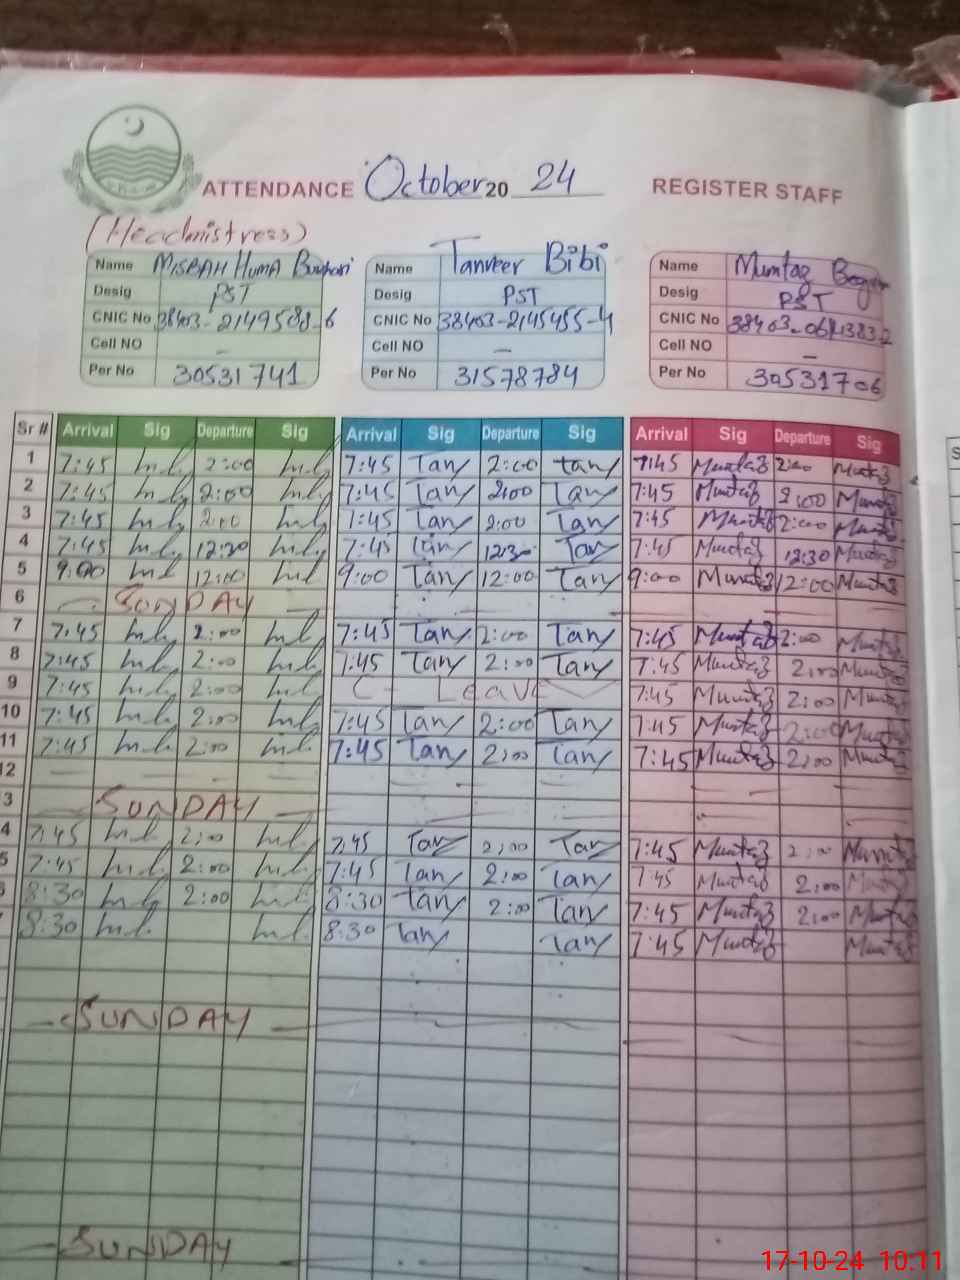 ATTENDANCE October 20 24 REGISTER STAFF
(Headmistress)
Name MISBAH HUMA Name Tanveer Bibi Name Mumtaz
Desig PST Desig PST Desig PST
CNIC No 38403-2149588-6 CNIC No 38403-2145455-4 CNIC No
Cell NO – Cell NO – Cell NO –
Per No 30531741 Per No 31578784 Per No 30531706
Sr # Arrival Sig Departure Sig Arrival Sig Departure Sig Arrival Sig Departure Sig
1 7:45 2:00 7:45 Tan 2:00 tan 7:45 Mumtaz 2:00 Mumtaz
2 7:45 2:00 7:45 Tan 2:00 Tan 7:45 Mumtaz 2:00 Mumtaz
3 7:45 2:00 7:45 Tan 2:00 Tan 7:45 Mumtaz 2:00 Mumtaz
4 7:45 12:30 7:45 Tan 12:30 Tan 7:45 Mumtaz 12:30 Mumtaz
5 9:00 12:00 9:00 Tan 12:00 Tan 9:00 Mumtaz 12:00 Mumtaz
6 SUNDAY
7 7:45 2:00 7:45 Tan 2:00 Tan 7:45 Mumtaz 2:00 Mumtaz
8 7:45 2:00 7:45 Tan 2:00 Tan 7:45 Mumtaz 2:00 Mumtaz
9 7:45 2:00 C- Leave 7:45 Mumtaz 2:00 Mumtaz
10 7:45 2:00 7:45 Tan 2:00 Tan 7:45 Mumtaz 2:00 Mumtaz
11 7:45 2:00 7:45 Tan 2:00 Tan 7:45 Mumtaz 2:00 Mumtaz
12
3 SUNDAY
4 7:45 2:00 7:45 Tan 2:00 Tan 7:45 Mumtaz 2:00 Mumtaz
5 7:45 2:00 7:45 Tan 2:00 Tan 7:45 Mumtaz 2:00 Mumtaz
8:30 2:00 8:30 Tan 2:00 Tan 7:45 Mumtaz 2:00 Mumtaz
8:30 8:30 Tan Tan 7:45 Mumtaz Mumtaz
SUNDAY
SUNDAY
17-10-24 10:11